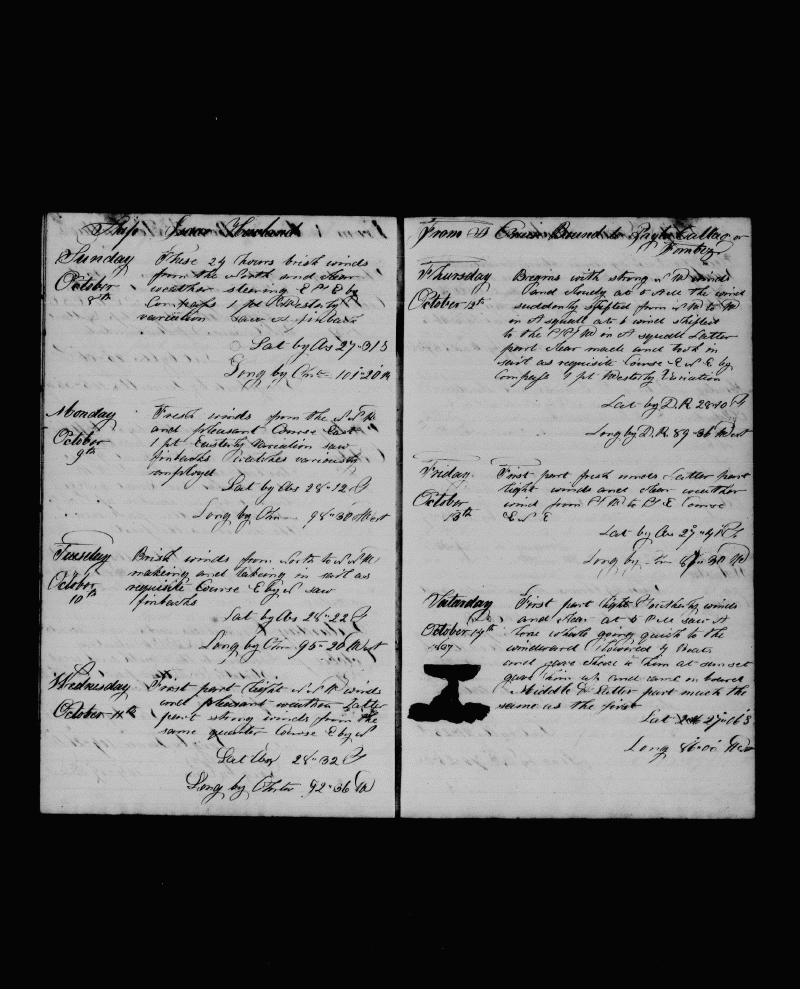 Ship Isaac Howland
Sunday
October
8th
These 24 hours brisk winds
from the North and clear
weather steering E S E by
Compass 1 pt Westerly
variation Saw a finback
Lat by Obs 27-31 S
Long by Chr 101-20 W
Monday
October
9th
Fresh winds from the N N W
and pleasant Course East
1 pt Easterly variation saw
finbacks Watches variously
employed
Lat by Obs 28-12 S
Long by Chr 98-30 West
Tuesday
October
10th
Brisk winds from North to N N W
making and taking in sail as
requisite Course E by N saw
finbacks
Lat by Obs 28-22 S
Long by Chr 95-20 West
Wednesday
October 11th
First part light N N W winds
and pleasant weather Latter
part strong winds from the
same quarter Course E by N
Lat Obs 28-32 S
Long by Chr 92-36 W
From a Cruise Bound to Callao or
Tumbez
Thursday
October 12th
Begins with strong N W winds
and cloudy at 5 AM the wind
suddenly shifted from N W to W
in A squall at 6 wind shifted
to the S S W in A squall Latter
part clear made and took in
sail as requisite Course E N E by
Compass 1 pt Westerly Variation
Lat by D.R. 28-10 S
Long by D.R. 89-36 West
Friday
October
13th
First part fresh winds Latter part
light winds and clear weather
wind from S W to S E Course
E N E
Lat by Obs 27-41 S
Long by Chr 30 W
Saturday
October 14th
First part light Southerly winds
and clear at 5 PM saw A
lone whale going quick to the
windward Lowered 4 Boats
and gave chase to him at sunset
gave him up and came on board
Middle & Latter part much the
same as the first
Lat 27-06 S
Long 86-00 West